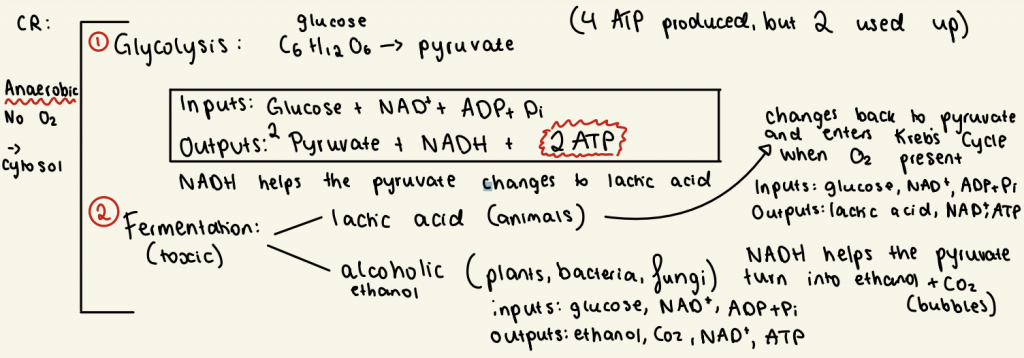 CR:
glucose
(4 ATP produced, but 2 used up)
① Glycolysis: C₆H₁₂O₆ → pyruvate
Anaerobic
No O₂
→
Cytosol
Inputs: Glucose + NAD⁺ + ADP + Pi
Outputs: 2 Pyruvate + NADH + 2 ATP
NADH helps the pyruvate changes to lactic acid
② Fermentation:
(toxic)
lactic acid (animals)
changes back to pyruvate
and enters Kreb's Cycle
when O₂ present
Inputs: glucose, NAD⁺, ADP+Pi
Outputs: lactic acid, NAD⁺, ATP
alcoholic (plants, bacteria, fungi)
ethanol
inputs: glucose, NAD⁺, ADP+Pi
outputs: ethanol, Co2, NAD⁺, ATP
NADH helps the pyruvate
turn into ethanol + CO₂
(bubbles)